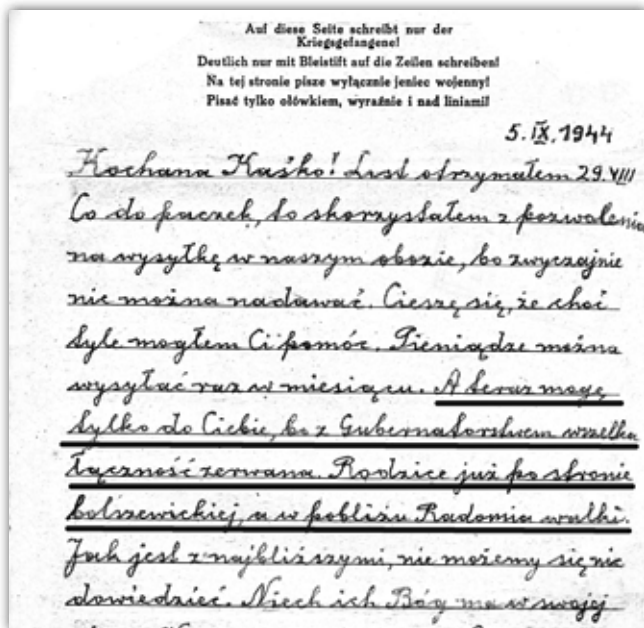 Auf diese Seite schreibt nur der
Kriegsgefangene!
Deutlich nur mit Bleistift auf die Zeilen schreiben!
Na tej stronie pisze wyłącznie jeniec wojenny!
Pisać tylko ołówkiem, wyraźnie i nad liniami!
5.IX.1944
Kochana Kaśko! List otrzymałem 29.VIII
Co do paczek, to skorzystałem z pozwolenia
na wysyłkę w naszym obozie, bo zwyczajnie
nie można nadawać. Cieszę się, że choć
tyle mogłem Ci pomóc. Pieniądze można
wysyłać raz w miesiącu. A teraz mogę
tylko do Ciebie, bo z Gubernatorstwem wszelka
łączność zerwana. Rodzice już po stronie
bolszewickiej, a w pobliżu Radomia walki.
Jak jest z najbliższymi, nie możemy się nic
dowiedzieć. Niech ich Bóg ma w swojej